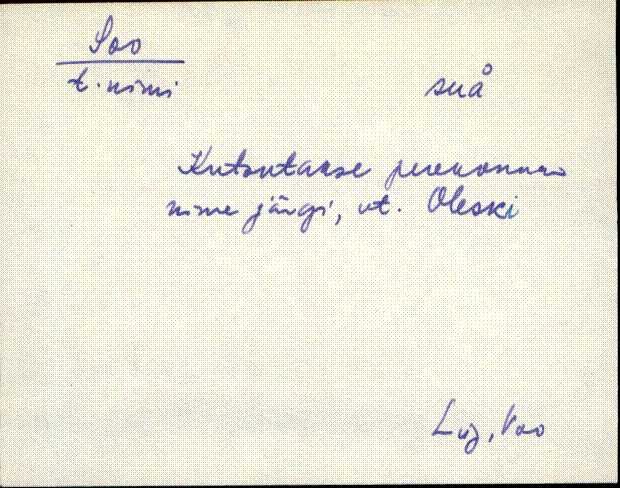 Soo
t. nimi
suå
Kutsutakse perekonna-
nime järgi, vt. Oleski
Lüg, Voo